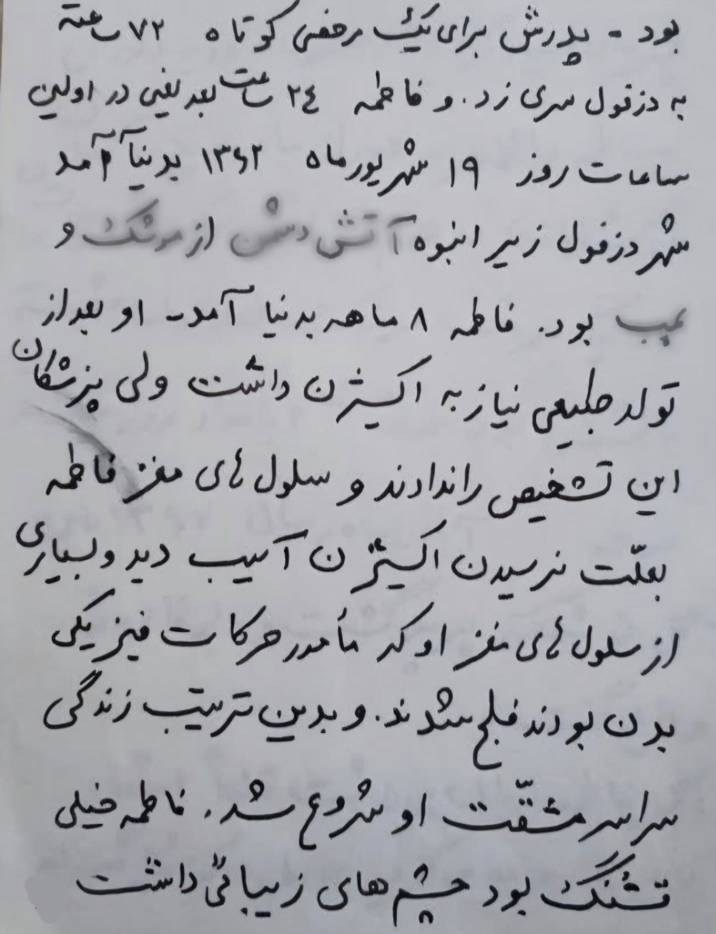 بود - پدرش برای یک مرخصی کوتاه ۷۲ ساعته
به دزفول سری زد. و فاطمه ۲۴ ساعت بعد یعنی در اولین
ساعات روز ۱۹ شهریور ماه ۱۳۶۲ بدنیا آمد
شهر دزفول زیر انبوه آتش دشمن از موشک و
بمب بود. فاطمه ۸ ماهه بدنیا آمد - او بعد از
تولد طبیعی نیاز به اکسیژن داشت ولی پزشکان
این تشخیص را ندادند و سلول های مغز فاطمه
بعلّت نرسیدن اکسیژن آسیب دید و بسیاری
از سلول های مغز او که مأمور حرکات فیزیکی
بدن بودند فلج شدند. و بدین ترتیب زندگی
سراسر مشقّت او شروع شد. فاطمه خیلی
قشنگ بود چشم های زیبائی داشت